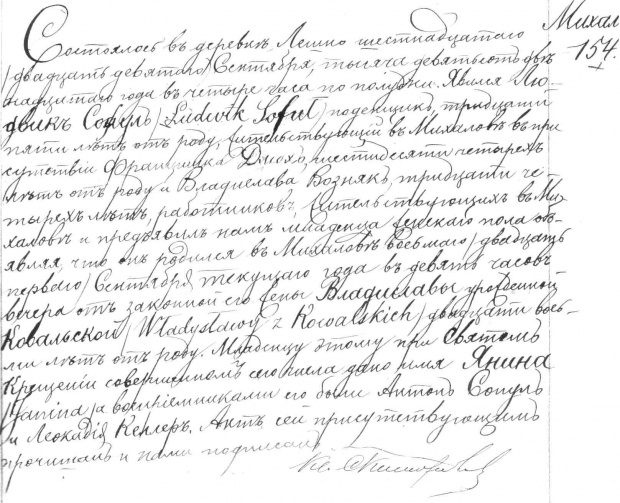 Михал
154.
Состоялось въ деревнѣ Лешно шестнадцатаго
/двадцать девятаго/ Сентября, тысяча девятьсотъ двѣ-
надцатаго года въ четыре часа по полудни. Явился Лю-
двикъ Софулъ /Ludwik Soful/ поденщикъ, тридцати
пяти лѣтъ отъ роду, жительствующій въ Михаловѣ въ при
сутствіи Францишка Дзіохо, шестидесяти четырехъ
лѣтъ отъ роду и Владислава Вознякъ, тридцати че-
тырехъ лѣтъ, работниковъ, жительствующихъ въ Ми-
халовѣ и предъявилъ намъ младенца женскаго пола объ-
являя, что онъ родился въ Михаловѣ восьмаго /двадцать
перваго/ Сентября текущаго года въ девять часовъ
вечера отъ законной его жены Владиславы урожденной
Ковальской /Władysławy z Kowalskich/ двадцати вось-
ми лѣтъ отъ роду. Младенцу этому при Святомъ
Крещеніи совершенномъ сего числа дано имя Янина
/Janina/ а воспріемниками его были Антонъ Сопулъ
и Леокадія Келлеръ. Актъ сей присутствующимъ
прочитанъ и нами подписанъ
Кс.